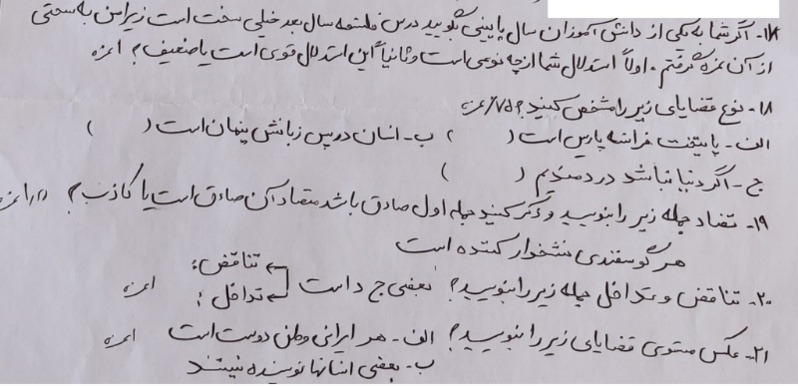 ۱۷- اگر شما به یکی از دانش آموزان سال پایینی بگویید درس فلسفه سال بعد خیلی سخت است زیرا من به سختی
از آن نمره گرفتم. اولاً استدلال شما از چه نوعی است و ثانیاً این استدلال قوی است یا ضعیف؟ ۱ نمره
۱۸- نوع قضایای زیر را مشخص کنید؟ ۷۵/ نمره
الف- پایتخت فرانسه پاریس است ( ) ب- انسان در پس زبانش پنهان است ( )
ج- اگر دنیا نباشد دردمندیم ( )
۱۹- تضاد جمله زیر را بنویسید و ذکر کنید جمله اول صادق باشد متضاد آن صادق است یا کاذب؟ نمره
هر گوسفندی نشخوار کننده است
۲۰- تناقض و تداخل جمله زیر را بنویسید؟ بعضی ج د است تناقض: تداخل: ۱ نمره
۲۱- عکس مستوی قضایای زیر را بنویسید؟ الف- هر ایرانی وطن دوست است ۱ نمره
ب- بعضی انسانها نویسنده نیستند